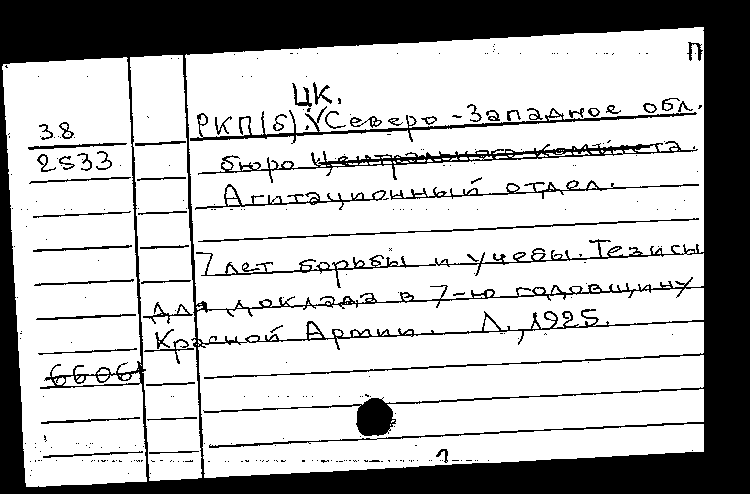 П
ЦК.
38 РКП(б).VСеверо-Западное обл.
2533 бюро Центрального Комитета.
Агитационный отдел.
7 лет борьбы и учебы. Тезисы
для доклада в 7-ю годовщину
Красной Армии. Л., 1925.
66061